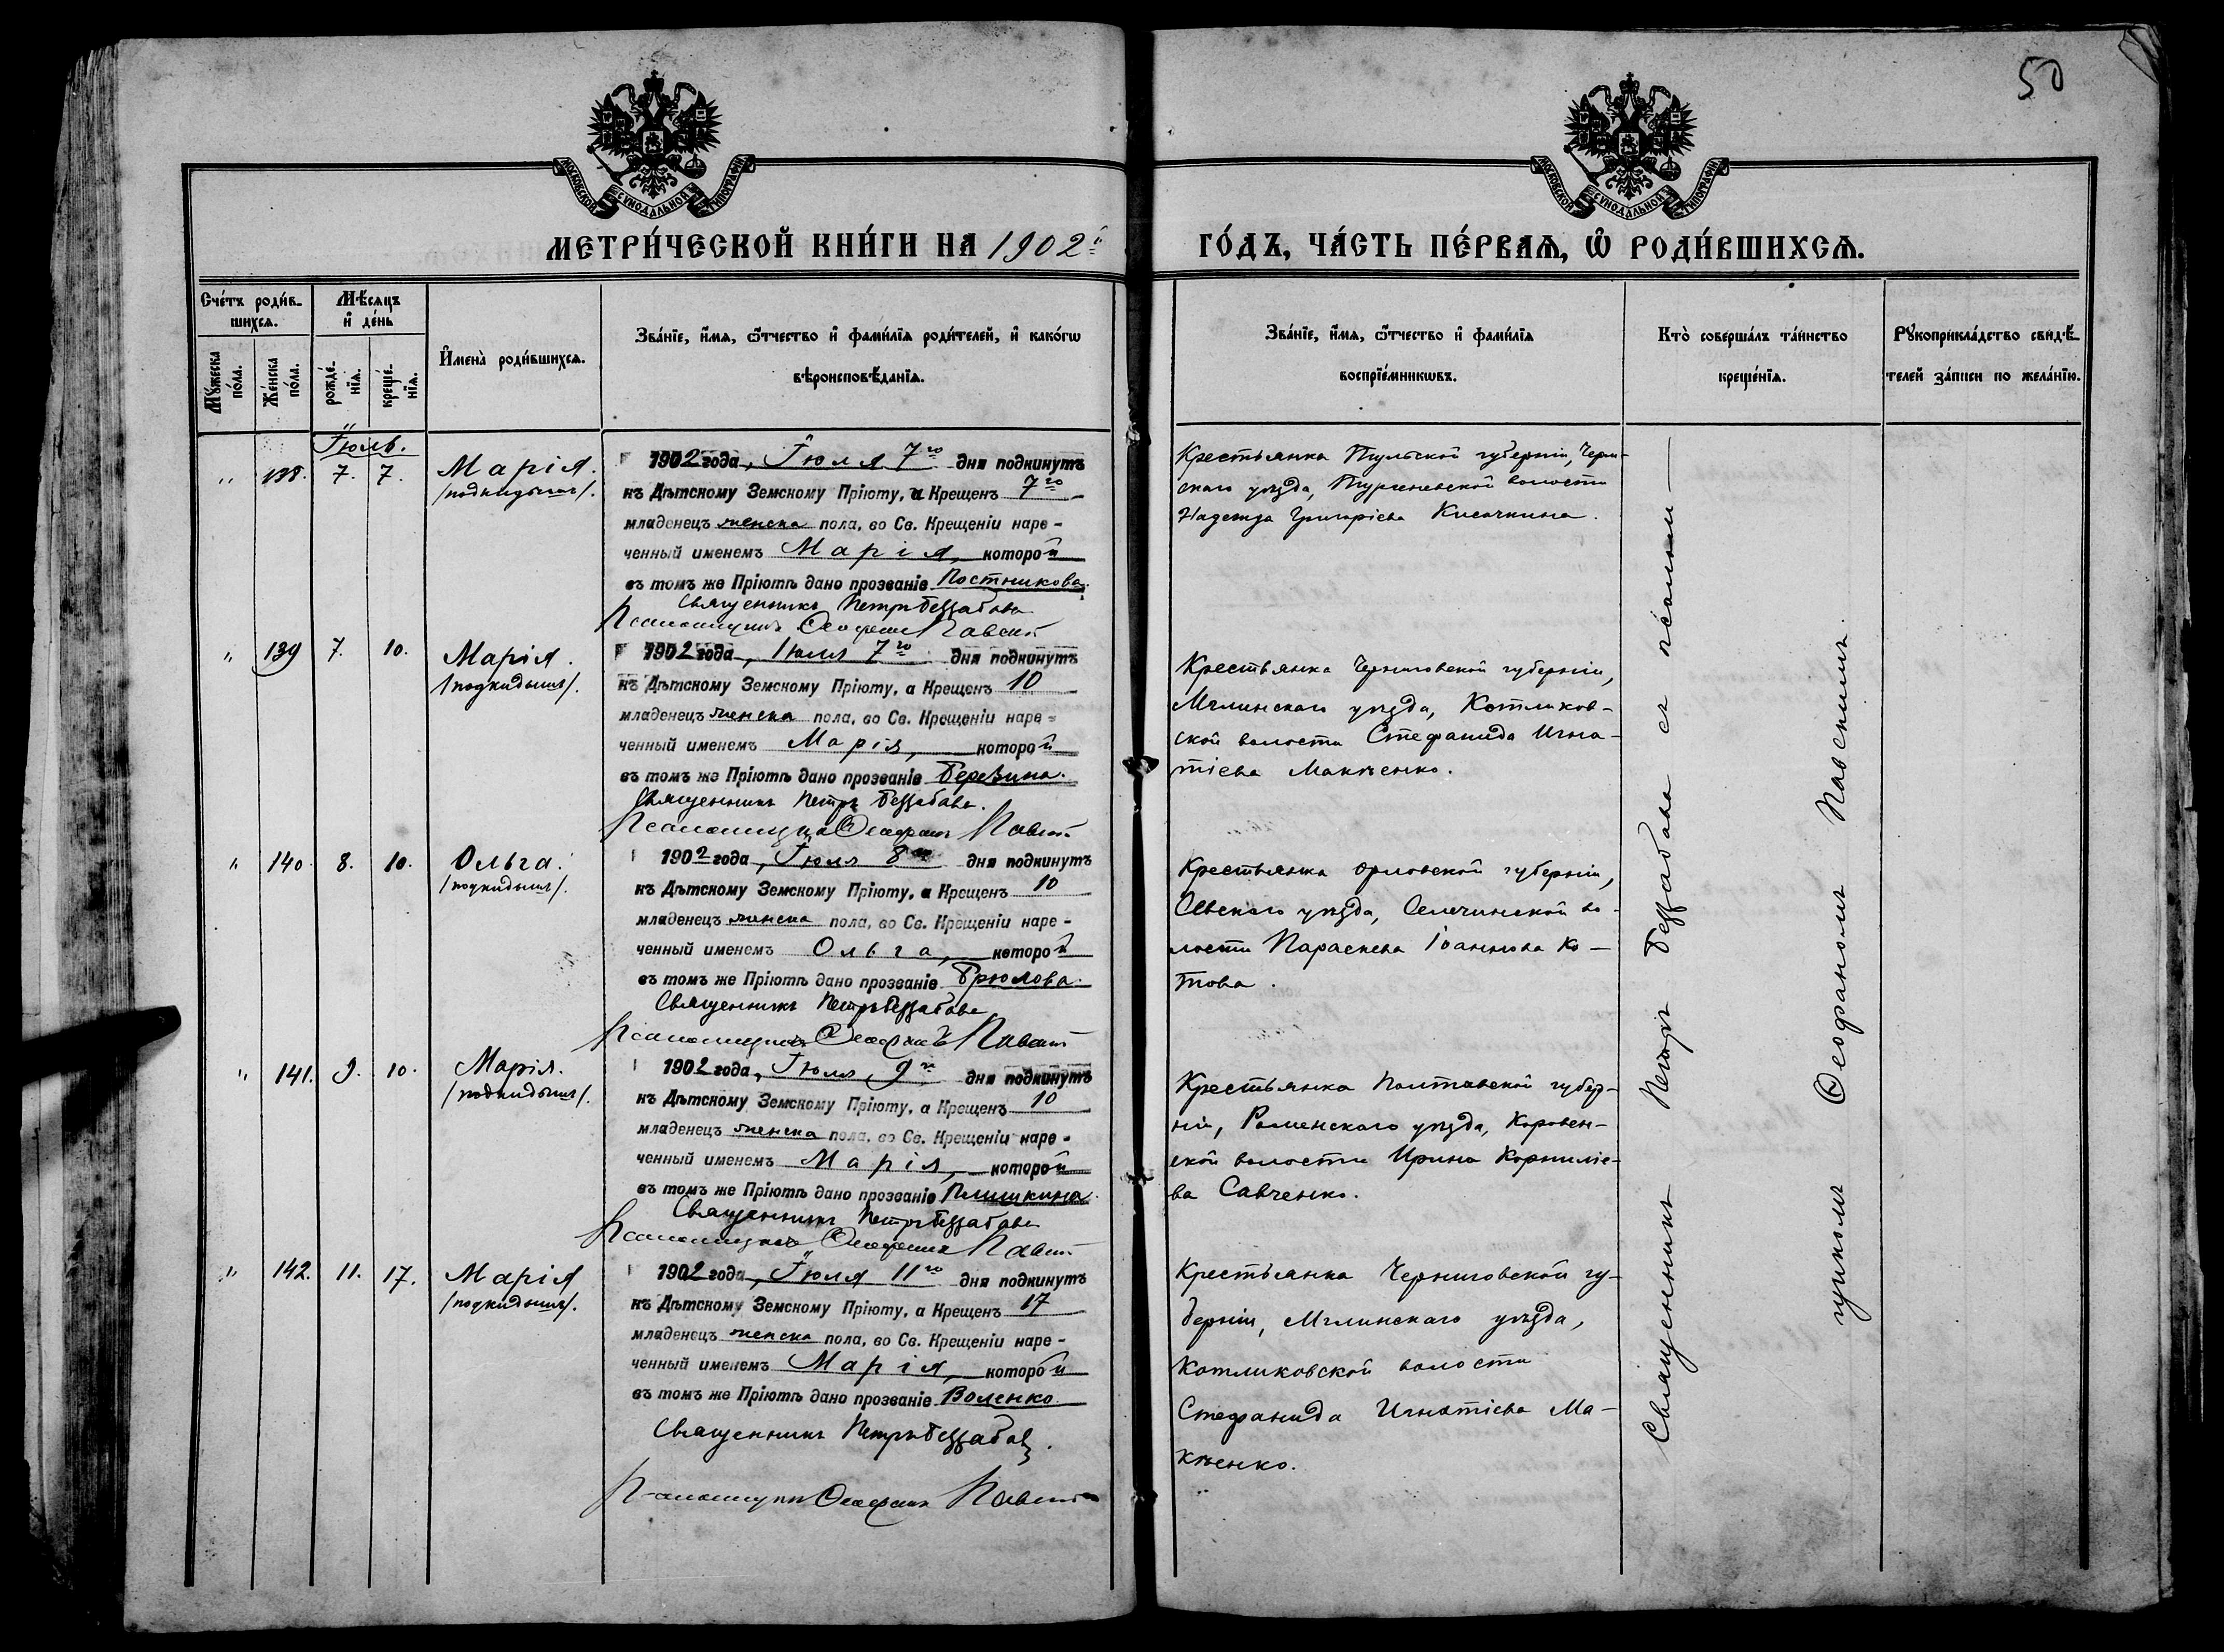 50
МОСКОВСКОЙ СУНОДАЛЬНОЙ ТИПОГРАФІИ
МОСКОВСКОЙ СУНОДАЛЬНОЙ ТИПОГРАФІИ
МЕТРИ́ЧЕСКОЙ КНИ́ГИ НА 1902й
ГО́ДЪ, ЧА́СТЬ ПЕ́РВАѦ, Ѽ РОДИ́ВШИХСѦ.
Сче́тъ роди́в-
шихсѧ.
Мꙋжеска по́ла.
Же́нска по́ла.
Мѣ́сѧцъ
и҆ де́нь
рожде́-
нїѧ.
креще́-
нїѧ.
И҆мена̀ роди́вшихсѧ.
Зва́нїе, и҆́мѧ, ѻ҆́тчество и҆ фами́лїѧ роди́телей, и҆ како́гѡ
вѣроисповѣ́данїѧ.
Зва́нїе, и҆́мѧ, ѻ҆́тчество и҆ фами́лїѧ
воспрїе́мникѡвъ.
Кто̀ соверша́лъ та́инство
креще́нїѧ.
Рꙋкоприкла́дство свидѣ́-
телей за́писи по жела́нїю.
Іюль.
" 138. 7. 7. Марія.
/подкидышъ/.
1902 года, Іюля 7го дня подкинутъ
къ Дѣтскому Земскому Пріюту, а Крещенъ 7го
младенецъ женска пола, во Св. Крещеніи наре-
ченный именемъ Марія, которой
въ томъ же Пріютѣ дано прозваніе Постникова.
Священникъ Петръ Беззабава
Псаломщикъ Ѳеофанъ Павскій
Крестьянка Тульской губерніи, Черн-
скаго уѣзда, Тургеневской волости
Надежда Григоріева Кисочкина.
" 139 7. 10. Марія.
/подкидышъ/.
1902 года, Іюля 7го дня подкинутъ
къ Дѣтскому Земскому Пріюту, а Крещенъ 10
младенецъ женска пола, во Св. Крещеніи наре-
ченный именемъ Марія, которой
въ томъ же Пріютѣ дано прозваніе Березина.
Священникъ Петръ Беззабава.
Псаломщикъ Ѳеофанъ Павскій
Крестьянка Черниговской губерніи,
Мглинскаго уѣзда, Котляков-
ской волости Стефанида Игна-
тіева Макѣенко.
" 140 8. 10. Ольга.
/подкидышъ/.
1902 года, Іюля 8го дня подкинутъ
къ Дѣтскому Земскому Пріюту, а Крещенъ 10
младенецъ женска пола, во Св. Крещеніи наре-
ченный именемъ Ольга, которой
въ томъ же Пріютѣ дано прозваніе Брюлова.
Священникъ Петръ Беззабава
Псаломщикъ Ѳеофанъ Павскій
Крестьянка Орловской губерніи,
Сѣвскаго уѣзда, Селечинской во-
лости Параскева Іоаннова Ко-
това.
" 141. 9. 10. Марія.
/подкидышъ/.
1902 года, Іюля 9го дня подкинутъ
къ Дѣтскому Земскому Пріюту, а Крещенъ 10
младенецъ женска пола, во Св. Крещеніи наре-
ченный именемъ Марія, которой
въ томъ же Пріютѣ дано прозваніе Плишкина.
Священникъ Петръ Беззабава
Псаломщикъ Ѳеофанъ Павскій
Крестьянка Полтавской губер-
ніи, Роменскаго уѣзда, Коровен-
ской волости Ирина Корниліе-
ва Савченко.
" 142. 11. 17. Марія
/подкидышъ/.
1902 года, Іюля 11го дня подкинутъ
къ Дѣтскому Земскому Пріюту, а Крещенъ 17
младенецъ женска пола, во Св. Крещеніи наре-
ченный именемъ Марія, которой
въ томъ же Пріютѣ дано прозваніе Воленко.
Священникъ Петръ Беззабава.
Псаломщикъ Ѳеофанъ Павскій
Крестьянка Черниговской гу-
берніи, Мглинскаго уѣзда,
Котляковской волости
Стефанида Игнатіева Ма-
кѣенко.
Священникъ Петръ Беззабава съ псаломщи-
щикомъ Ѳеофаномъ Павскимъ.